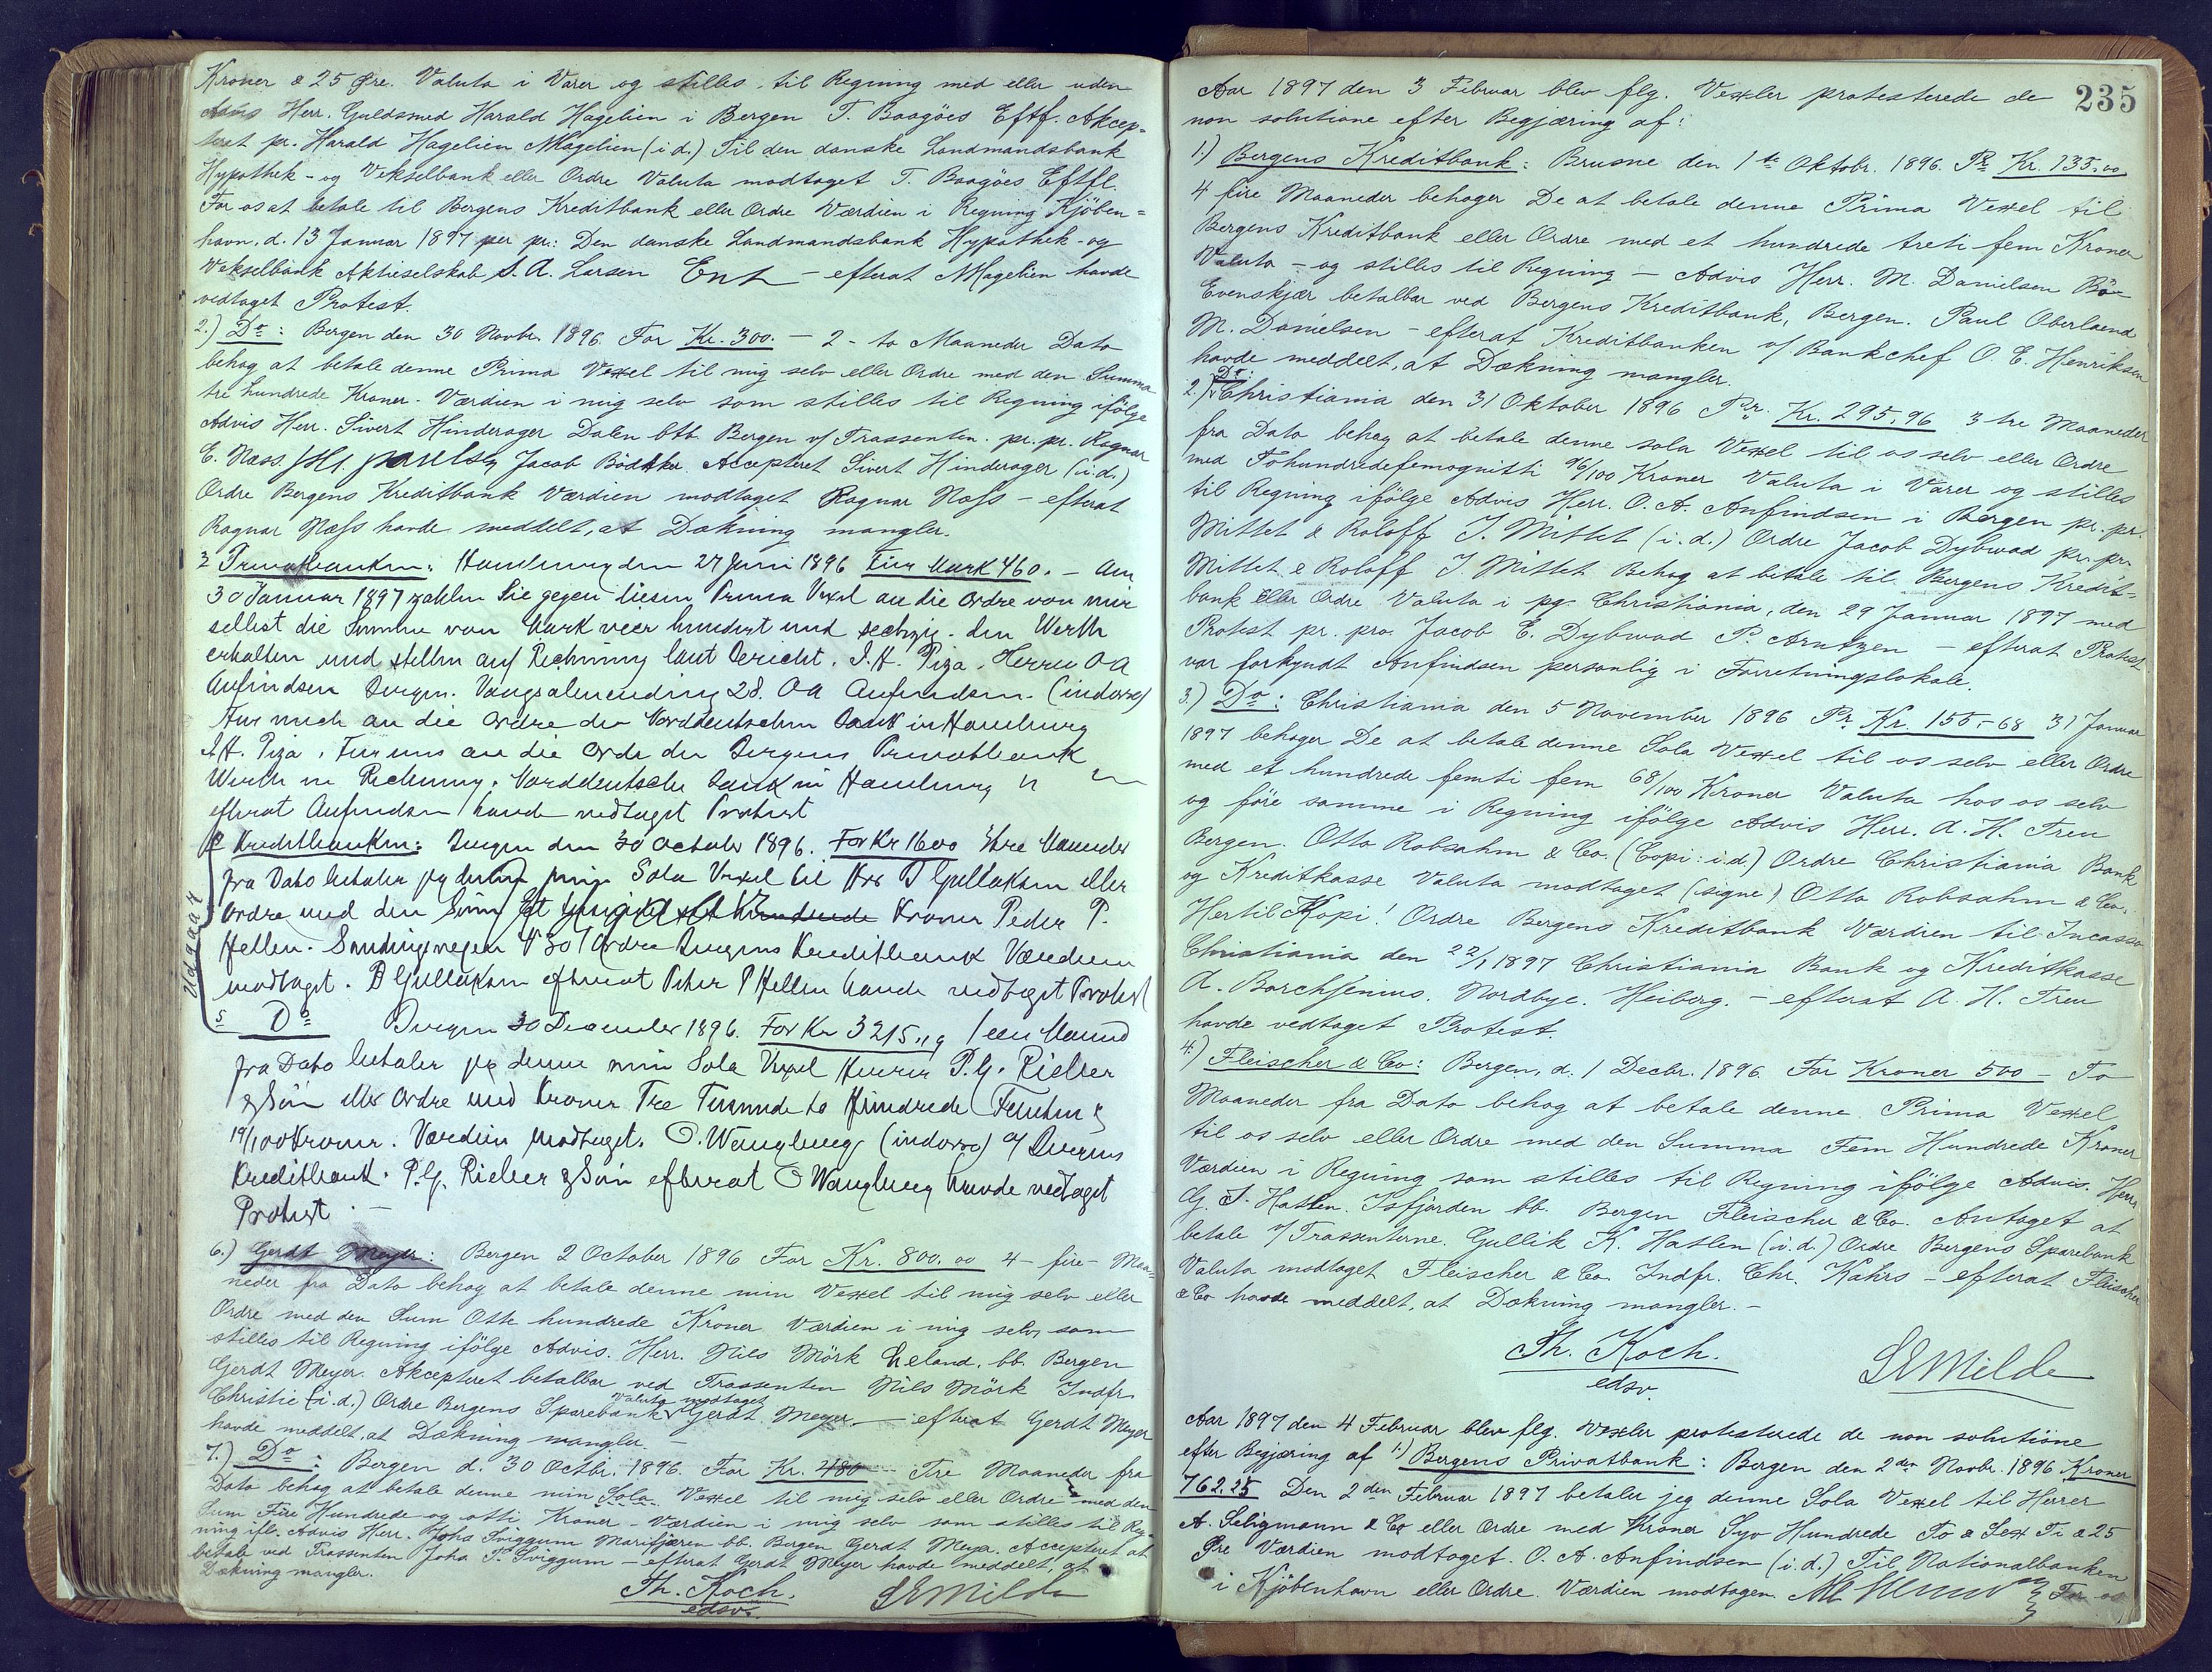 Kroner & 25 Øre. Valuta i Varer og stilles til Regning med eller uden
Advis Herr. Guldsmed Harald Hagelien i Bergen T. Baagöes Eftf. Akcep-
teret pr. Harald Hagelien MHagelien (i.d.) Til den danske Landmandsbank
Hypothek- og Vekselbank eller Ordre Valuta modtaget T. Baagöes Eftfl.
For os at betale til Bergens Kreditbank eller Ordre Værdien i Regning Kjöben=
havn, d. 13 Januar 1897 per pr: Den danske Landmandsbank Hypothek- og
Vekselbank Aktieselskab S. A. Larsen – efterat MHagelien havde
vedtaget Protest.
2.) Do: Bergen den 30 Novbr. 1896. For Kr. 300. – 2 - to Maaneder Dato
behag at betale denne Prima Vexel til mig selv eller Ordre med den Summa
tre hundrede Kroner. Værdien i mig selv som stilles til Regning ifölge
Advis Herr. Sivert Hinderager Dalen btb. Bergen v/ Trassenten. pr. pr. Ragnar
E. Næss. Jacob Bödtker. Accepteret Sivert Hinderager (i.d.)
Ordre Bergens Kreditbank Værdien modtaget Ragnar Næss – efterat
Ragnar Næss havde meddelt, at Dækning mangler.
3 Privatbanken: Hamburg den 27 Juni 1896 Für Mark 460. – Am
30 Januar 1897 zahlen Sie gegen diesen Prima Vexel an die Ordre von mir
selbst die Summe von Mark veer hundert und sechzig. den Werth
erhalten und stellen auf Rechnung laut Bericht. J. H. Piza. Herrn O A
Anfindsen Bergen. Vaagsalmending 28. O A Anfindsen. (indorso)
Fur mich an die Ordre der Norddeutschen Bank in Hamburg
J. H. Piza. Fur uns an die Ordre der Bergens Privatbank
Werth in Rechnung. Norddeutsche Bank in Hamburg
efterat Anfindsen havde vedtaget Protest
Kreditbanken: Bergen den 30 October 1896. For Kr 1600 3tre Maaneder
fra Dato betaler jeg denne Sola Vexel til Hrr D Gullaksen eller
Ordre med den Sum Kroner Peder P.
Hellen. Sandvigsvegen No 30 / Ordre Bergens Kreditbank Værdien
modtaget. D Gullaksen efterat Peder P Hellen havde vedtaget Protest
Udgaar
5 Do Bergen 30 December 1896. For Kr 3215.19 1 een Maaned
fra Dato betaler jeg denne min Sola Vexel Herrer P. G. Rieber
& Sön eller Ordre med Kroner Tre Tusinde to Hundrede Femten &
19/100 Kroner. Værdien modtaget. O. Wangberg (indorso) a/ Bergens
Kreditbank. P. G. Rieber & Sön efterat O Wangberg havde vedtaget
Protest. –
6.) Gerdt Meyer: Bergen 2 October 1896 For Kr. 800.00 4 – fire – Maa=
neder fra Dato behag at betale denne min Vexel til mig selv eller
Ordre med den Sum Otte hundrede Kroner Værdien i mig selv som
stilles til Regning ifölge Advis. Herr. Nils Mörk Leland. bb. Bergen
Gerdt Meyer. Akcepteret betalbar ved Trassenten Nils Mörk Indfr.
Christie (i.d.) Ordre Bergens Sparebank Valuta modtaget Gerdt Meyer. – efterat Gerdt Meyer
havde meddelt, at Dækning mangler. –
7.) Do: Bergen d. 30 Octbr. 1896. For Kr. 480 Tre Maaneder fra
Dato behag at betale denne min Sola Vexel til mig selv eller Ordre med den
Sum Fire Hundrede og otti Kroner – Værdien i mig selv som stilles til Reg-
ning ifl. Advis Herr. Johs Sviggum Marifjæren bb. Bergen Gerdt Meyer. Accepteret at
betale ved Trassenten Joha T. Sviggum – efterat Gerdt Meyer havde meddelt, at
Dækning mangler.
Th. Koch.
edsv.
SEMilde
235
Aar 1897 den 3 Februar blev flg. Vexler protesterede de
non solutione efter Begjæring af:
1.) Bergens Kreditbank: Brusne den 1ste Oktobr. 1896. Pr Kr. 135.00
4 fire Maaneder behager De at betale denne Prima Vexel til
Bergens Kreditbank eller Ordre med et hundrede treti fem Kroner
Valuta – og stilles til Regning – Advis Herr. M. Danielsen Bö-
Evenskjær betalbar ved Bergens Kreditbank, Bergen. Paul Oberlaend
M. Danielsen – efterat Kreditbanken v/ Bankchef O. E. Henriksen
havde meddelt, at Dækning mangler.
2.) Do: Christiania den 31 Oktober 1896 Pr. Kr. 295,96 3 tre Maaneder
fra Dato behag at betale denne sola Vexel til os selv eller Ordre
med Tohundredefemognitti 96/100 Kroner Valuta i Varer og stilles
til Regning ifölge Advis Herr. O. A. Anfindsen i Bergen pr. pr.
Mittet & Roloff J. Mittet (i.d.) Ordre Jacob Dybwad pr. pr.
Mittet & Roloff J. Mittet Behag at betale til Bergens Kredit-
bank eller Ordre Valuta i pg. Christiania, den 29 Januar 1897 med
Protest pr. pro. Jacob E. Dybwad P. Arntzen – efterat Protest
var forkyndt Anfindsen personlig i Forretningslokale.
3.) Do: Christiania den 5 November 1896 Pr Kr. 155.68 31 Januar
1897 behager De at betale denne Sola Vexel til os selv eller Ordre
med et hundrede femti fem 68/100 Kroner Valuta hos os selv
og före samme i Regning ifölge Advis Herr. A. H. Treu
Bergen. Otto Robsahm & Co. (Copi: i.d.) Ordre Christiania Bank
og Kreditkasse Valuta modtaget (signe) Otto Robsahm & Co.
Hertil Kopi! Ordre Bergens Kreditbank Værdien til Incasso
Christiania den 22/1 1897 Christiania Bank og Kreditkasse
A. Borchsenius. Nordbye. Heiberg. – efterat A. H. Treu
havde vedtaget Protest.
4.) Fleischer & Co: Bergen, d. 1 Decbr. 1896. For Kroner 500 – To
Maaneder fra Dato behag at betale denne Prima Vexel
til os selv eller Ordre med den Summa Fem Hundrede Kroner
Værdien i Regning som stilles til Regning ifölge Advis. Herr
G. S. Hatlen. Isfjorden bb. Bergen Fleischer & Co. Antaget at
betale v/ Trassenterne. Gullik K. Hatlen (i.d.) Ordre Bergens Sparebank
Valuta modtaget Fleischer & Co. Indfr. Chr. Kahrs – efterat Fleischer
& Co havde meddelt, at Dækning mangler. –
Th. Koch.
edsv.
SEMilde
Aar 1897 den 4 Februar blev flg. Vexler protesterede de non solutione
efter Begjæring af 1.) Bergens Privatbank: Bergen den 2den Novbr. 1896 Kroner
762.25 Den 2den Februar 1897 betaler jeg denne Sola Vexel til Herrer
A. Seligmann & Co eller Ordre med Kroner Syv Hundrede To & Sex Ti & 25
Øre Værdien modtaget. O. A. Anfindsen (i.d.) Til Nationalbanken
i Kjöbenhavn eller Ordre. Værdien modtagen. For os